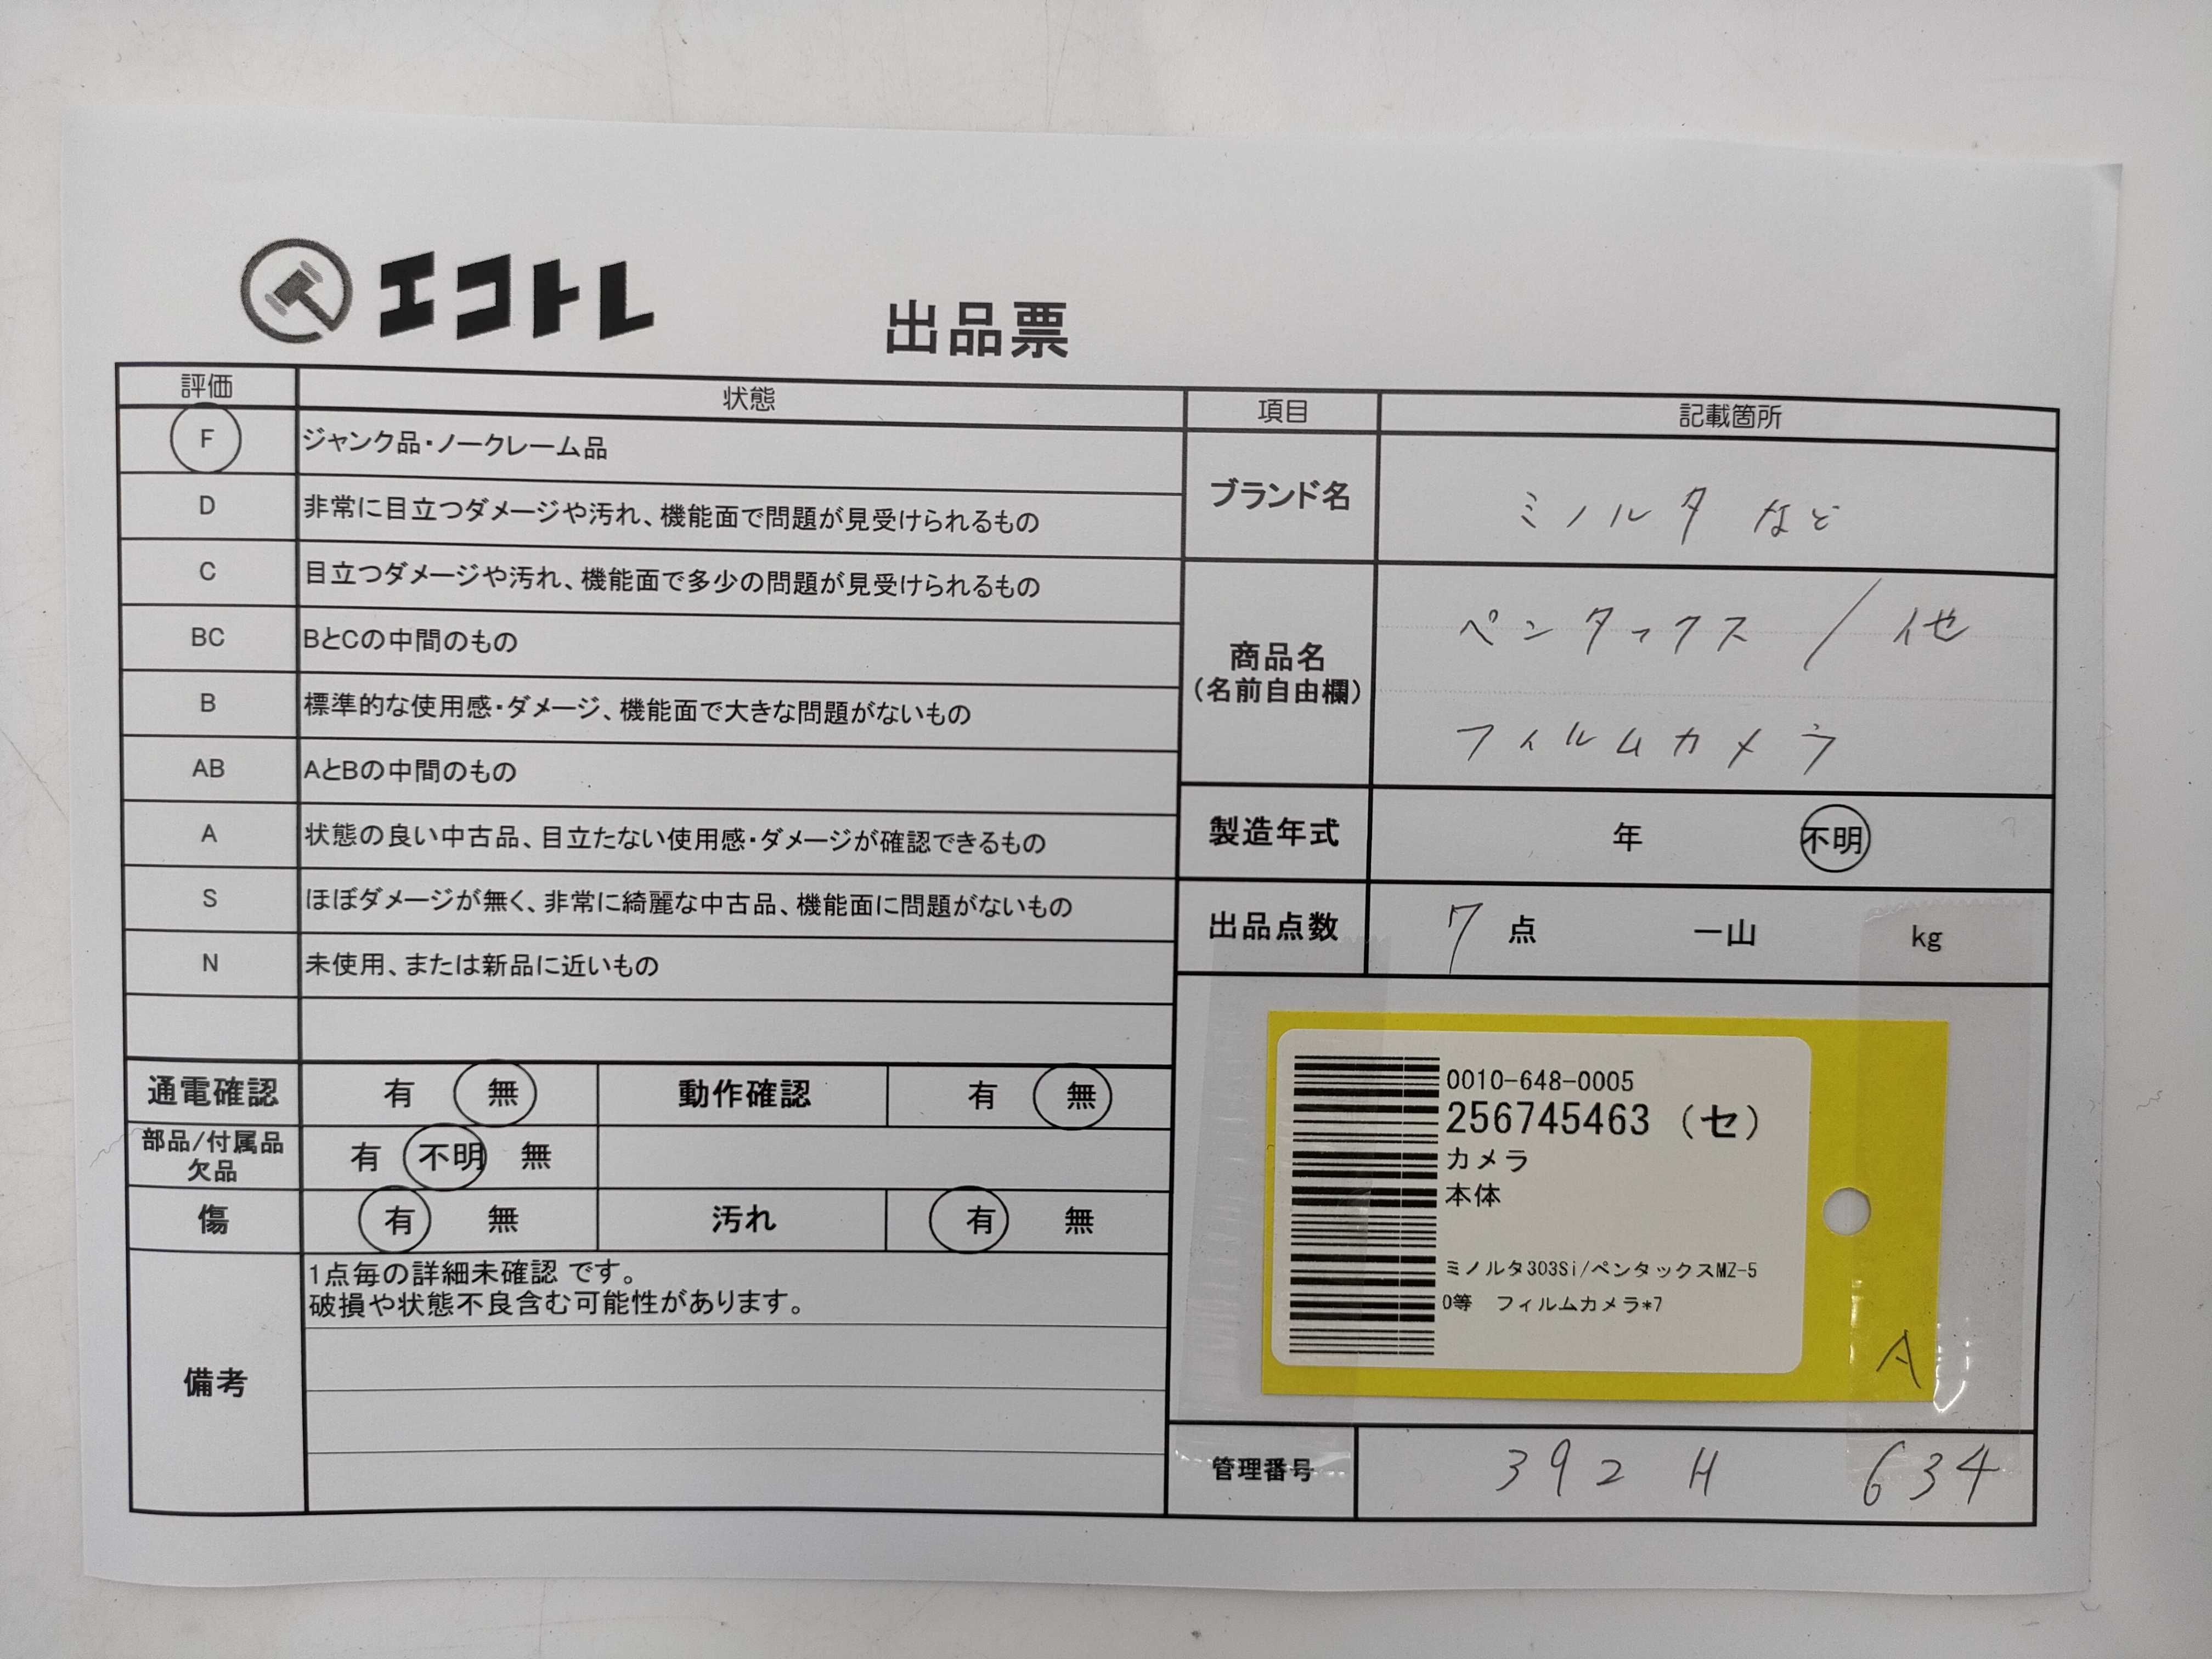 エコトレ
出品票
評価 状態
F ジャンク品・ノークレーム品
D 非常に目立つダメージや汚れ、機能面で問題が見受けられるもの
C 目立つダメージや汚れ、機能面で多少の問題が見受けられるもの
BC BとCの中間のもの
B 標準的な使用感・ダメージ、機能面で大きな問題がないもの
AB AとBの中間のもの
A 状態の良い中古品、目立たない使用感・ダメージが確認できるもの
S ほぼダメージが無く、非常に綺麗な中古品、機能面に問題がないもの
N 未使用、または新品に近いもの
通電確認 有 無 動作確認 有 無
部品/付属品
欠品 有 不明 無
傷 有 無 汚れ 有 無
備考
1点毎の詳細未確認 です。
破損や状態不良含む可能性があります。
項目 記載箇所
ブランド名 ミノルタ など
商品名
(名前自由欄)
ペンタックス / 他
フィルムカメラ
製造年式 年 不明
出品点数 7 点 一山 kg
0010-648-0005
256745463 (セ)
カメラ
本体
ミノルタ303Si/ペンタックスMZ-5
0等 フィルムカメラ*7
A
管理番号 392 H 634